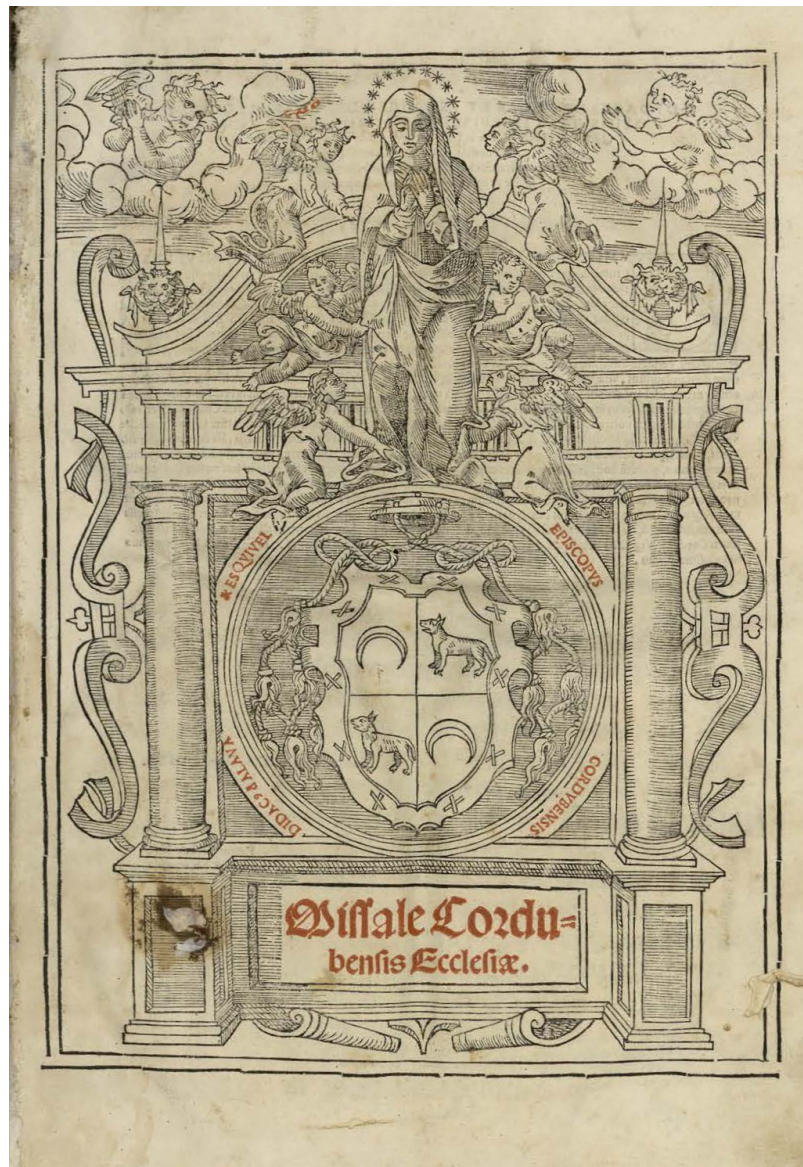 DIDACꝰ d ALAVA
& ESQVIVEL
EPISCOPVS
CORDVBENSIS
Miſſale Cordu=
benſis Eccleſiæ.